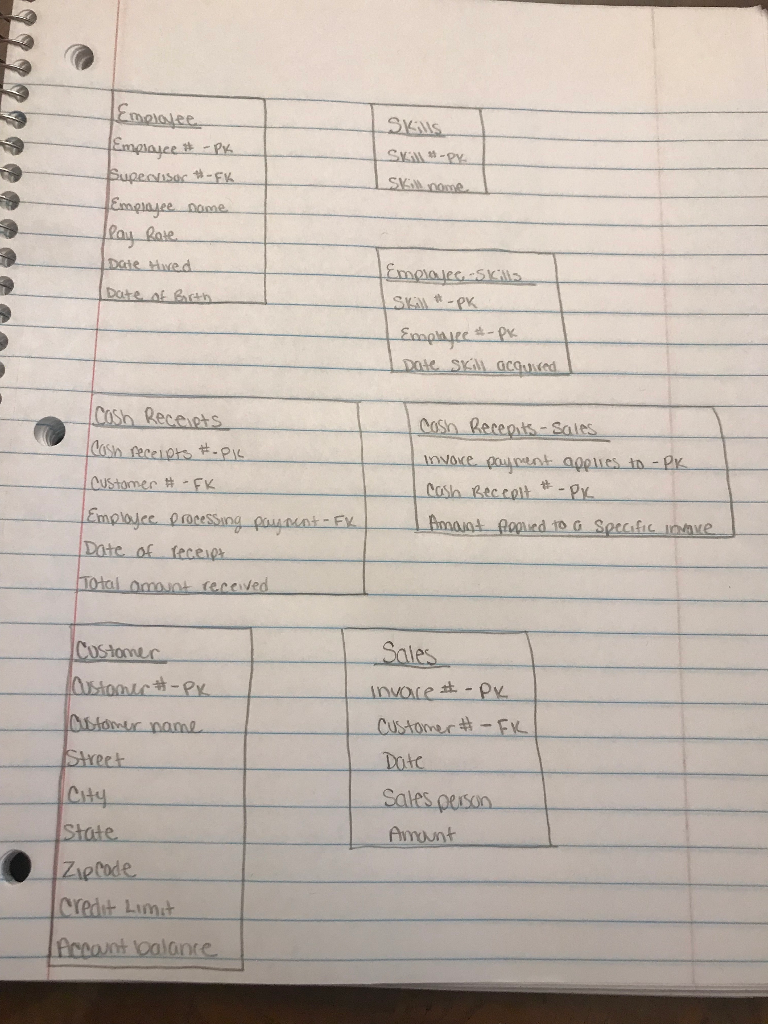 Employee
Employee # - PK
Supervisor # - FK
Employee name
Pay Rate
Date Hired
Date of Birth
Skills
Skill # - PK
Skill name
Employee-Skills
Skill # - PK
Employee # - PK
Date Skill acquired
Cash Receipts
Cash receipts # - PK
Customer # - FK
Employee processing payment - FK
Date of receipt
Total amount received
Cash Recepits - Sales
invoice payment applies to - PK
Cash Recepit # - PK
Amount Applied to a Specific invoice
Customer
Customer # - PK
Customer name
Street
City
State
Zipcode
Credit Limit
Account balance
Sales
invoice # - PK
Customer # - FK
Date
Sales person
Amount